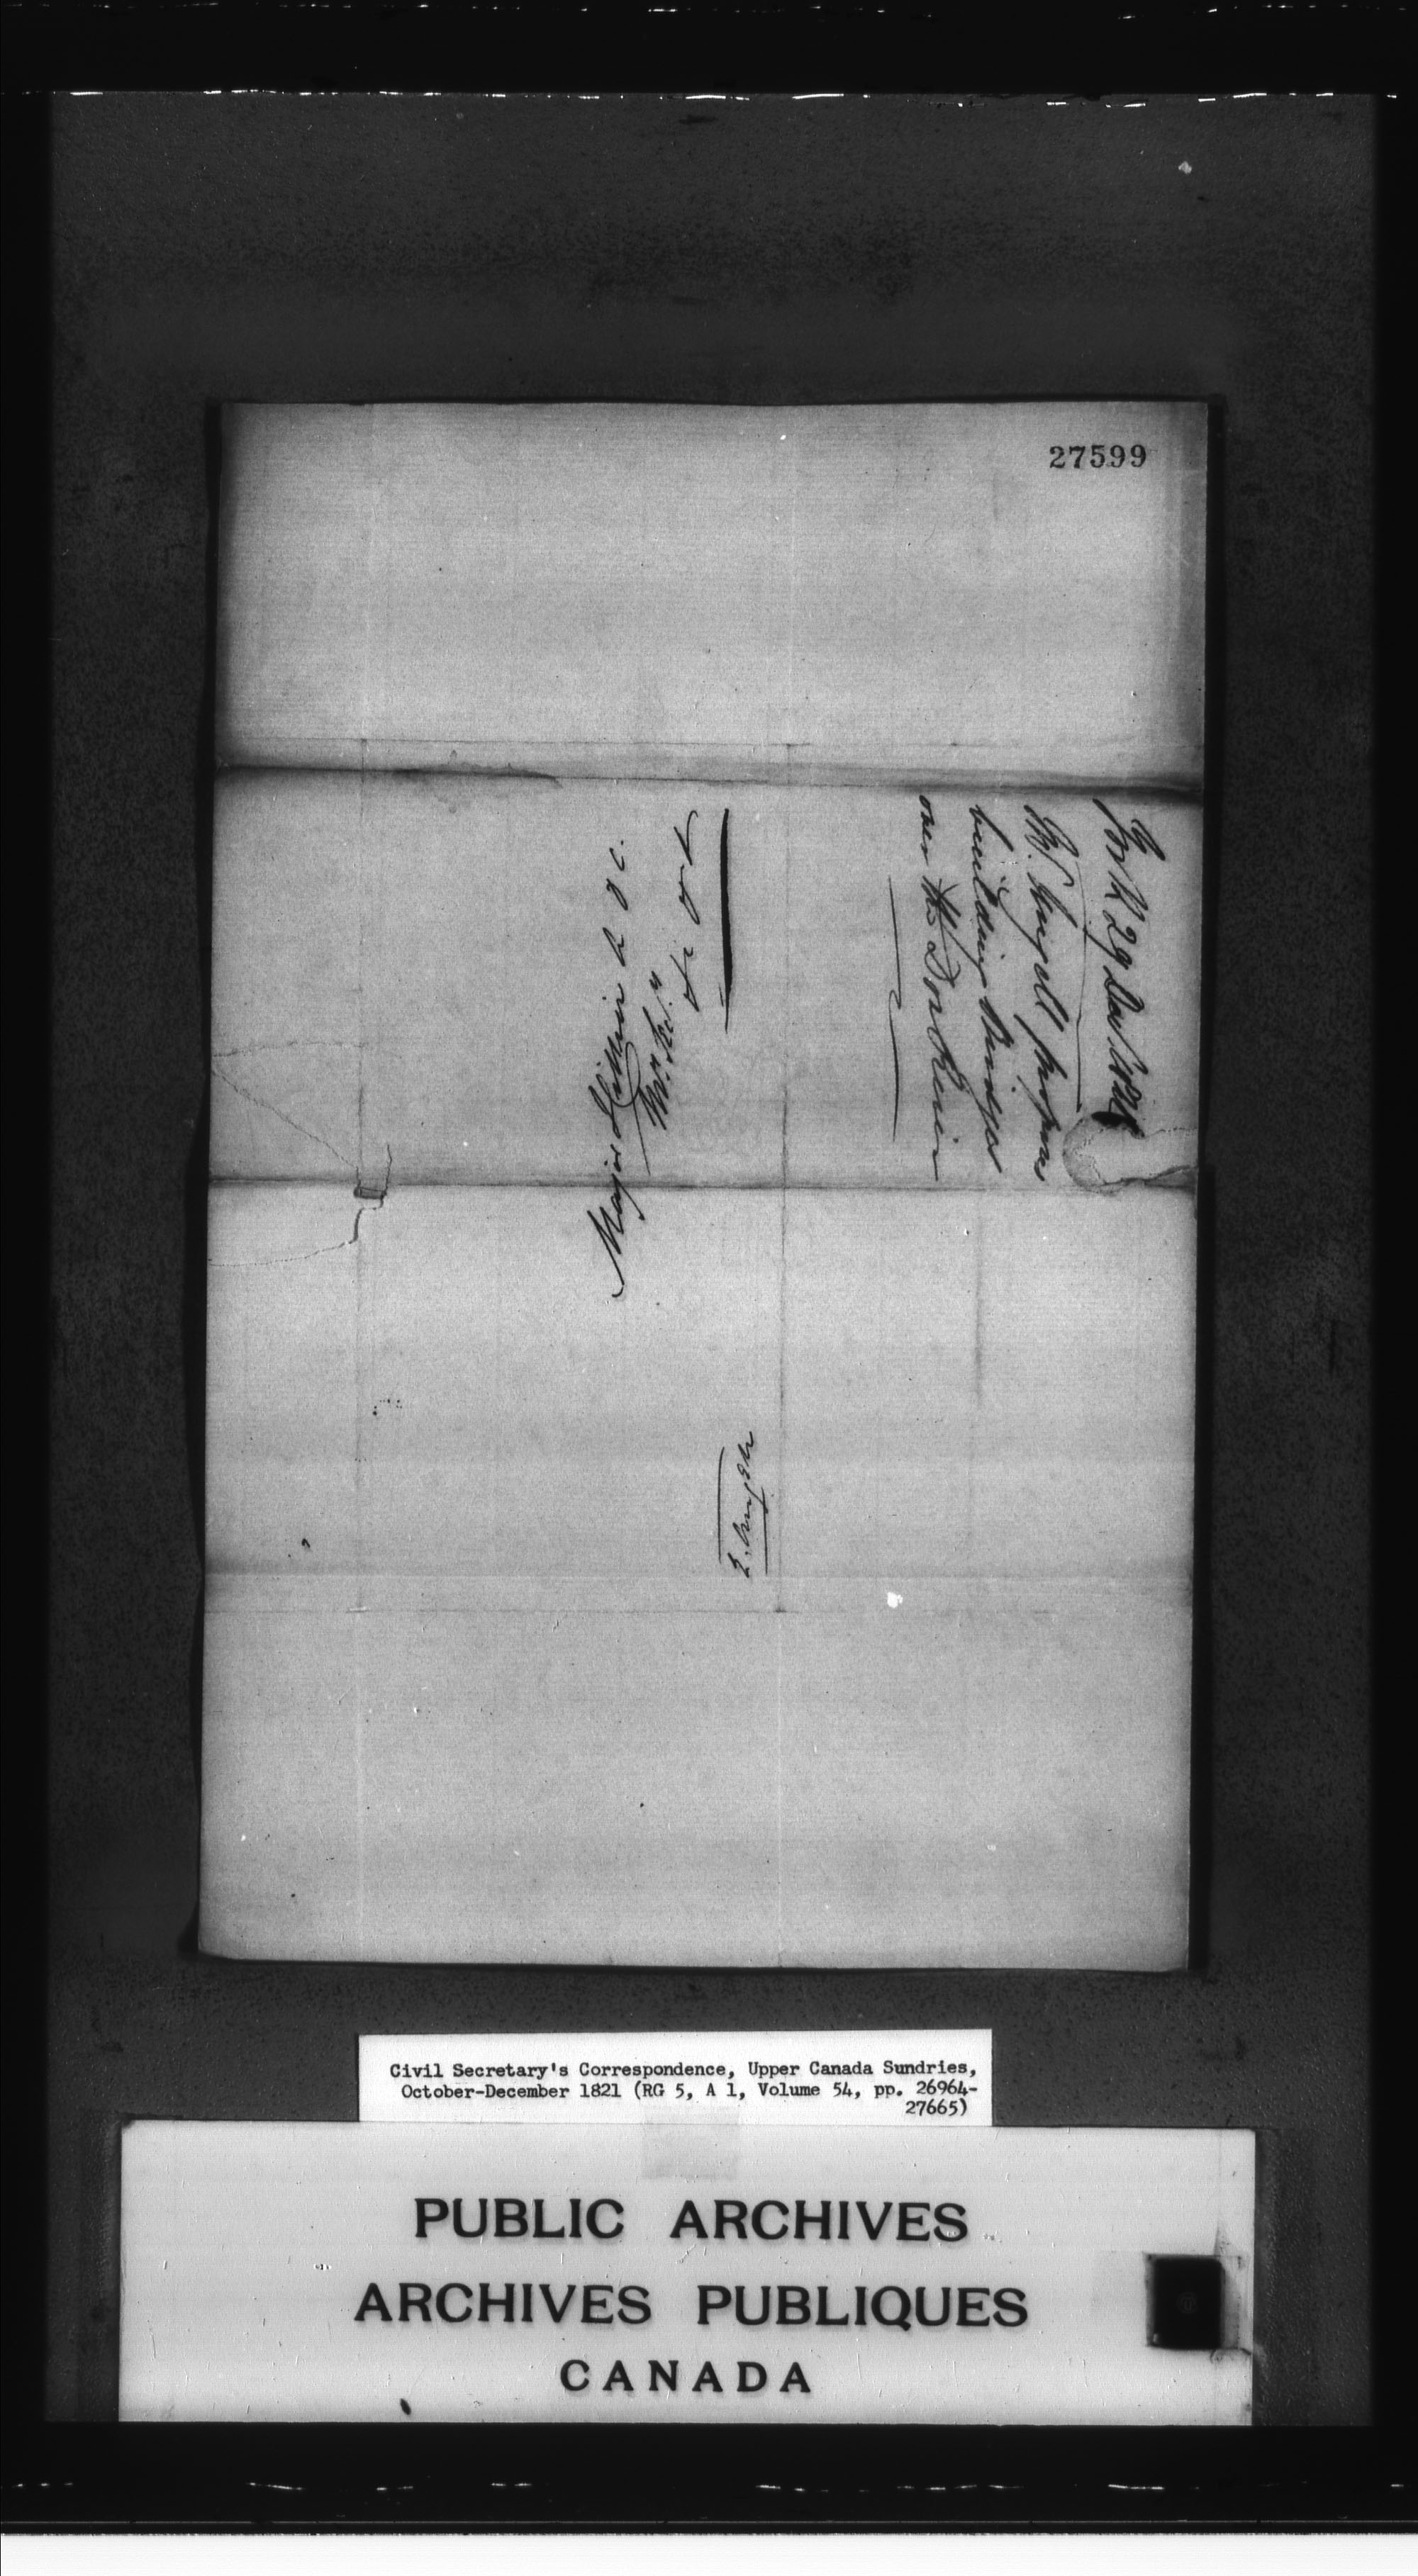 27599
York 29 Dec 1821
building Bridges
over the Don River
Major Hillier &c &c.
&c &c &c
E. Angell
Civil Secretary's Correspondence, Upper Canada Sundries,
October-December 1821 (RG 5, A 1, Volume 54, pp. 26964-
27665)
PUBLIC ARCHIVES
ARCHIVES PUBLIQUES
CANADA